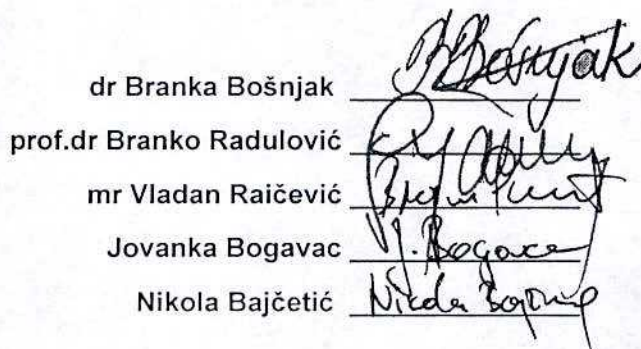 dr Branka Bošnjak BBošnjak
prof.dr Branko Radulović
mr Vladan Raičević
Jovanka Bogavac J. Bogavac
Nikola Bajčetić Nikola